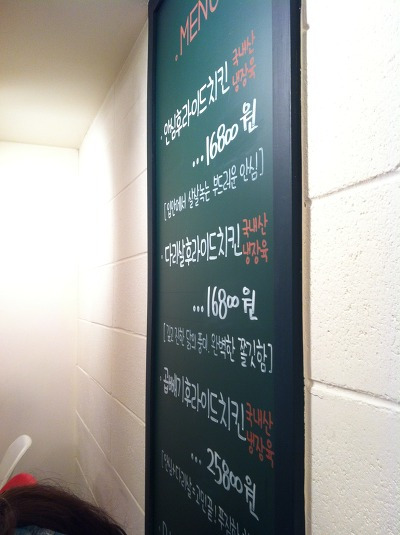 .MENU
·안심후라이드치킨 국내산 냉장육
...16800원
[입안에서 살살녹는 부드러운 안심]
·다리살후라이드치킨 국내산 냉장육
...16800원
[깊고 진한 닭의 풍미, 완벽한 쫄깃함]
·곱빼기후라이드치킨 국내산 냉장육
... 25800원
[안심+다리살=고민끝!